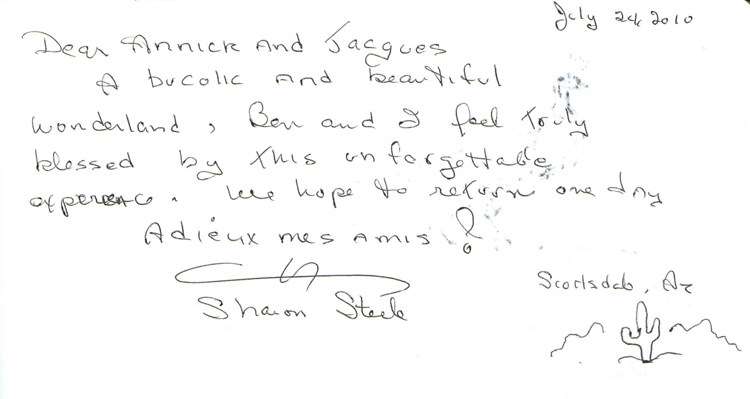 July 24, 2010
Dear Annick And Jacques
A bucolic and beautiful
wonderland, Ben and I feel truly
blessed by this unforgettable
experience. We hope to return one day
Adiéux mes Amis !
Sharon Steele
Scottsdale, Az